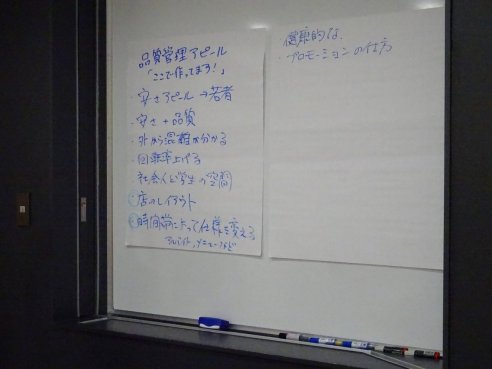 品質管理アピール
「ここで作ってます！」
・安さアピール→若者
・安さ+品質
・外から混雑が分かる
・回転率上げる
社会人と学生の空間
・店のレイアウト
・時間帯によって仕様を変える
アルバイト、メニューなど
健康的な
・プロモーションの仕方